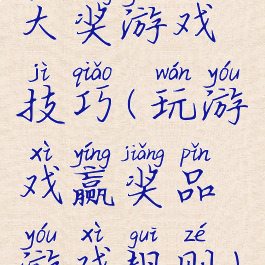 大奖游戏
jì qiǎo wán yóu
技巧(玩游
xì yíng jiǎng pǐn
戏赢奖品
yóu xì guī zé
游戏规则)